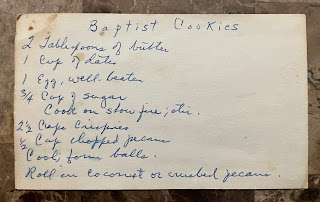 Baptist Cookies
2 Tablespoons of butter
1 Cup of dates
1 Egg, well-beaten
3/4 Cup of sugar
Cook on slow fire; stir.
2 1/2 Cups Crispies
1/2 Cup chopped pecans
Cool; form balls.
Roll in coconut or crushed pecans.